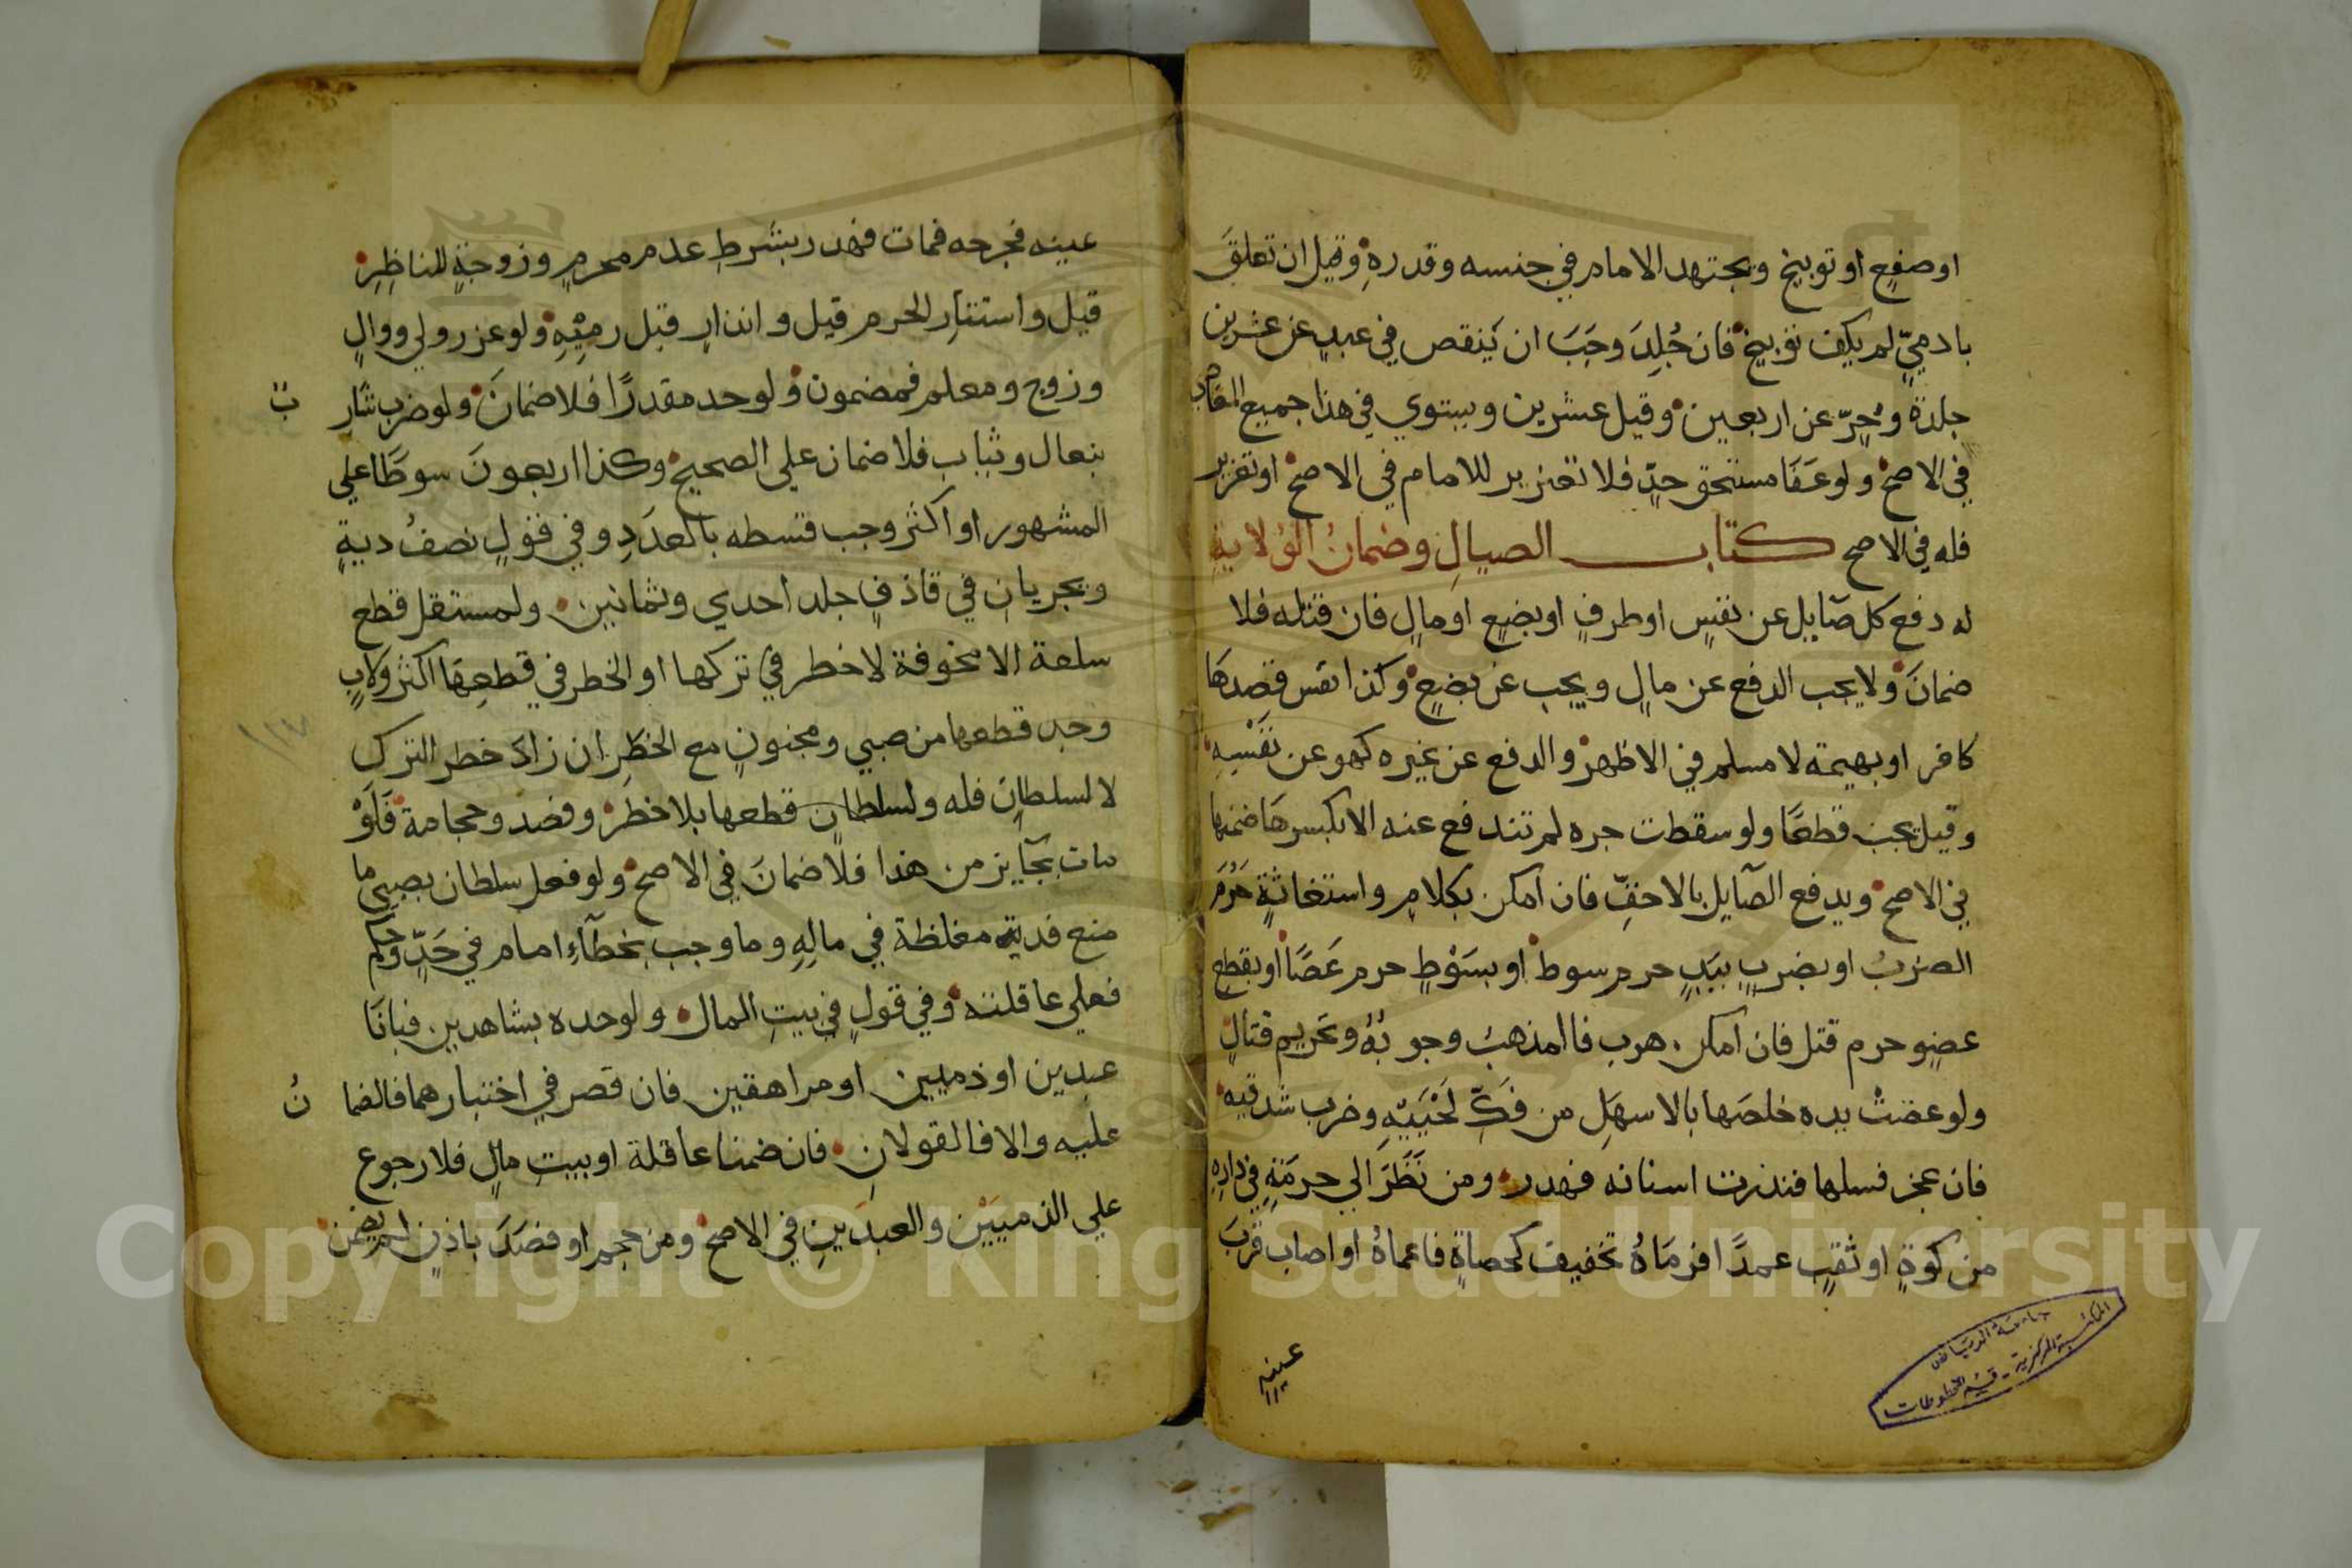 او صفع او توبيخ ويجتهد الامام في جنسه وقدره وقيل ان تعلق
بادميّ لم يكف توبيخ فان جُلِدَ وجَبَ ان يَنقص في عبدٍ عن عشرين
جلدة وحُرّ عن اربعين وقيل عشرين ويستوي في هذا جميع المعاصي
في الاصح ولو عَفَا مستحق حدٍّ فلا تعزير للامام في الاصح او تعزير
فله في الاصح كتاب الصيالِ وضمانُ الوُلايةِ
له دفع كل صايل عن نفسٍ او طرفٍ او بضعٍ او مالٍ فان قتله فلا
ضمانَ ولا يجب الدفع عن مالٍ ويجب عن بضعٍ وكذا نفس قصدها
كافر او بهيمة لا مسلم في الاظهر والدفع عن غيره كهو عن نفسِهِ
وقيل يجب قطعًا ولو سقطت جره لم تندفع عنه الا بكسرها ضمنها
في الاصح ويدفع الصآيل بالاخفِّ فان امكن بكلامٍ واستغاثةٍ حَرُمَ
الضربُ او بضربٍ بيَدٍ حرم سوط او بسَوْطٍ حرم عَصًا او بقطع
عضوٍ حرم قتل فان امكن هرب فاالمذهبُ وجوبُهُ وتحريم قتالٍ
ولو عضتْ يده خلصَها بالاسهَلِ من فَكِّ لَحْيَيْهِ وضرب شدقيه
فان عجز فسلها فندرت اسنانه فهدر ومن نَظَرَ الي حرمَتِهِ في دارِهِ
من كوةٍ او ثقبٍ عمدًا فرمَاهُ بخفيف كحصاةٍ فاعماهُ او اصاب قربَ
عينه
جامعة الرياض
المكتبة المركزية - قسم المخطوطات
عينه فجرحه فمات فهدر بشرطِ عدم محرمٍ وزوجةٍ للناظِرِ
قيل واستتارِ الحرم قيل وانذارٍ قبل رميِهِ ولو عزر ولي ووالٍ
وزوج ومعلم فمضمون ولو حد مقدرًا فلا ضمانَ ولو ضرب شار
بنعال وثياب فلا ضمان علي الصحيح وكذا اربعونَ سوطًا علي
المشهور او اكثر وجب قسطه بالعدَدِ وفي قولٍ نصفُ ديةٍ
ويجريان في قاذفٍ جلد احدي وثمانين ولمستقل قطع
سلعة الا مخوفة لا خطر في تركها او الخطر في قطعِهَا اكثر ولابٍ
وجد قطعها من صبي ومجنونٍ مع الخطرِ ان زاد خطر الترك
لا لسلطانٍ فله ولسلطانٍ قطعها بلا خطر وفصد وحجامة فَلَوْ
مات بجآيز من هذا فلا ضمانَ في الاصح ولو فعل سلطان بصبي ما
منع فدية مغلظة في مالِهِ وما وجب بخطآءِ امام في حَدٍّ وحكم
فعلي عاقلته وفي قولٍ في بيتِ المال ولو حده بشاهدين فبانَا
عبدين او ذميين او مراهقين فان قصر في اختبارهما فالضما نُ
عليه والا فالقولانِ فان ضمنا عاقلة او بيتِ مالٍ فلا رجوع
علي الذميَيْن والعبدَينِ في الاصح ومن حجم او فصَدَ باذنٍ لم يضمن
Copyright © King Saud University